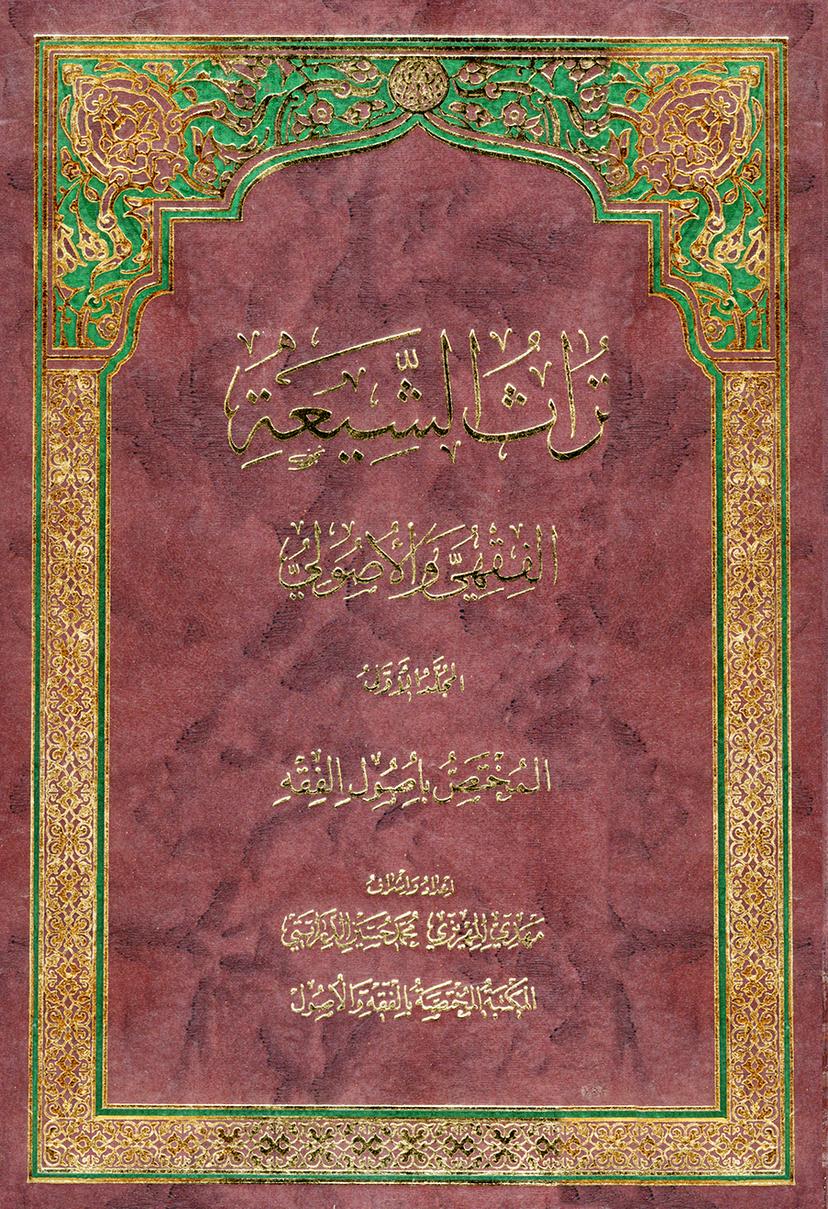 تُرَاثُ الشِّيعَةِ
الفِقْهِيُّ وَالْأُصُولِيُّ
المُجَلَّدُ الأَوَّلُ
المُخْتَصُّ بِأُصُولِ الفِقْهِ
إعداد وإشراف
مهدي المهريزي محمد حسين الدرايتي
المكتبة المختصة بالفقه والأصول